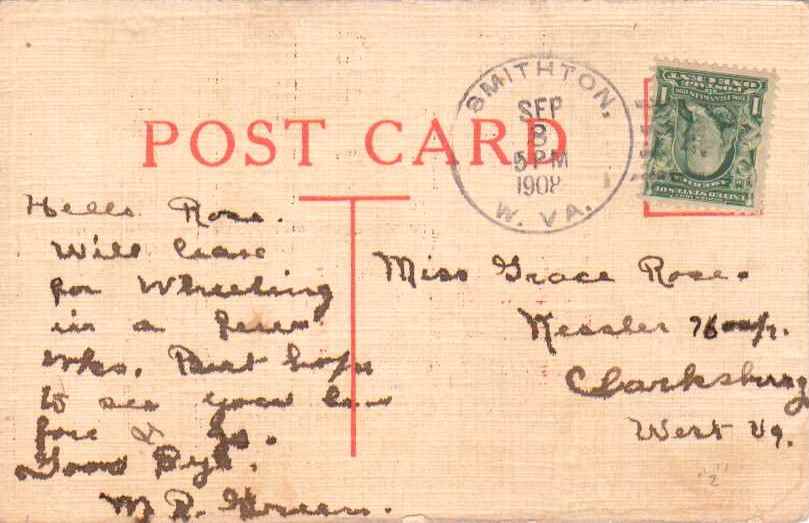 POST CARD
SMITHTON,
SEP
3
5 PM
1908
W. VA.
Hello Rose.
Will leave
for Wheeling
in a few
Wks. But hope
to see you be
fore I go.
Good Bye.
M R. Green.
Miss Grace Rose.
Kessler
Clarksburg
West Va.